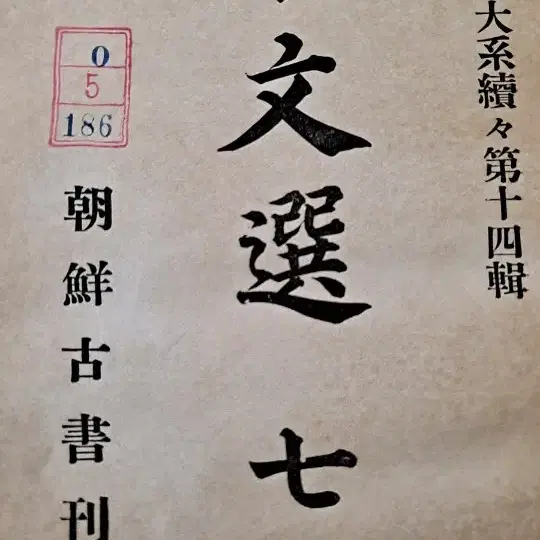 大系續々第十四輯
文選 七
0
5
186
朝鮮古書刊